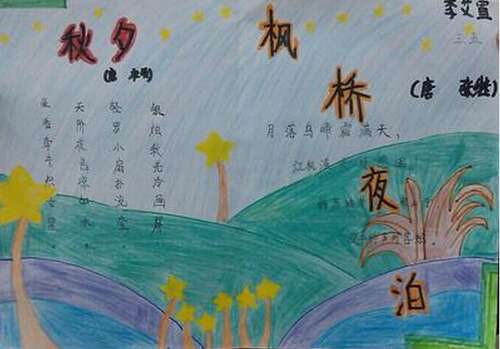 李艾
三.五
秋夕
(唐 杜牧)
银烛秋光冷画屏。
轻罗小扇扑流萤
天阶夜色凉如水。
看牵牛织女星。
枫桥夜泊
(唐 张继)
月落乌啼霜满天，
江枫渔